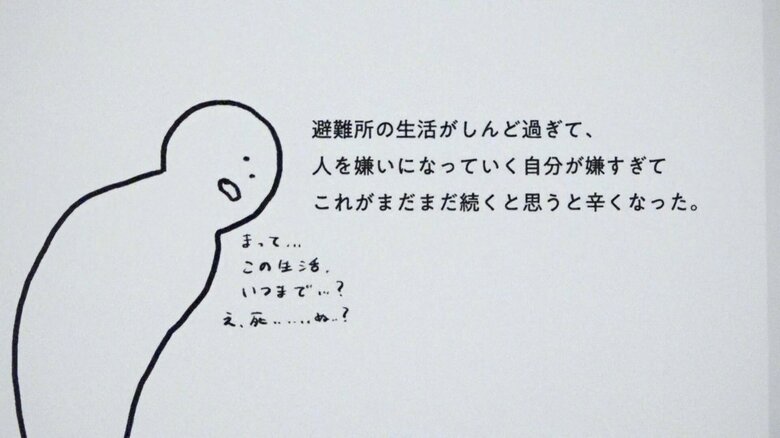 避難所の生活がしんど過ぎて、
人を嫌いになっていく自分が嫌すぎて
これがまだまだ続くと思うと辛くなった。
まって...
この生活、
いつまで...?
え、死......ぬ..?